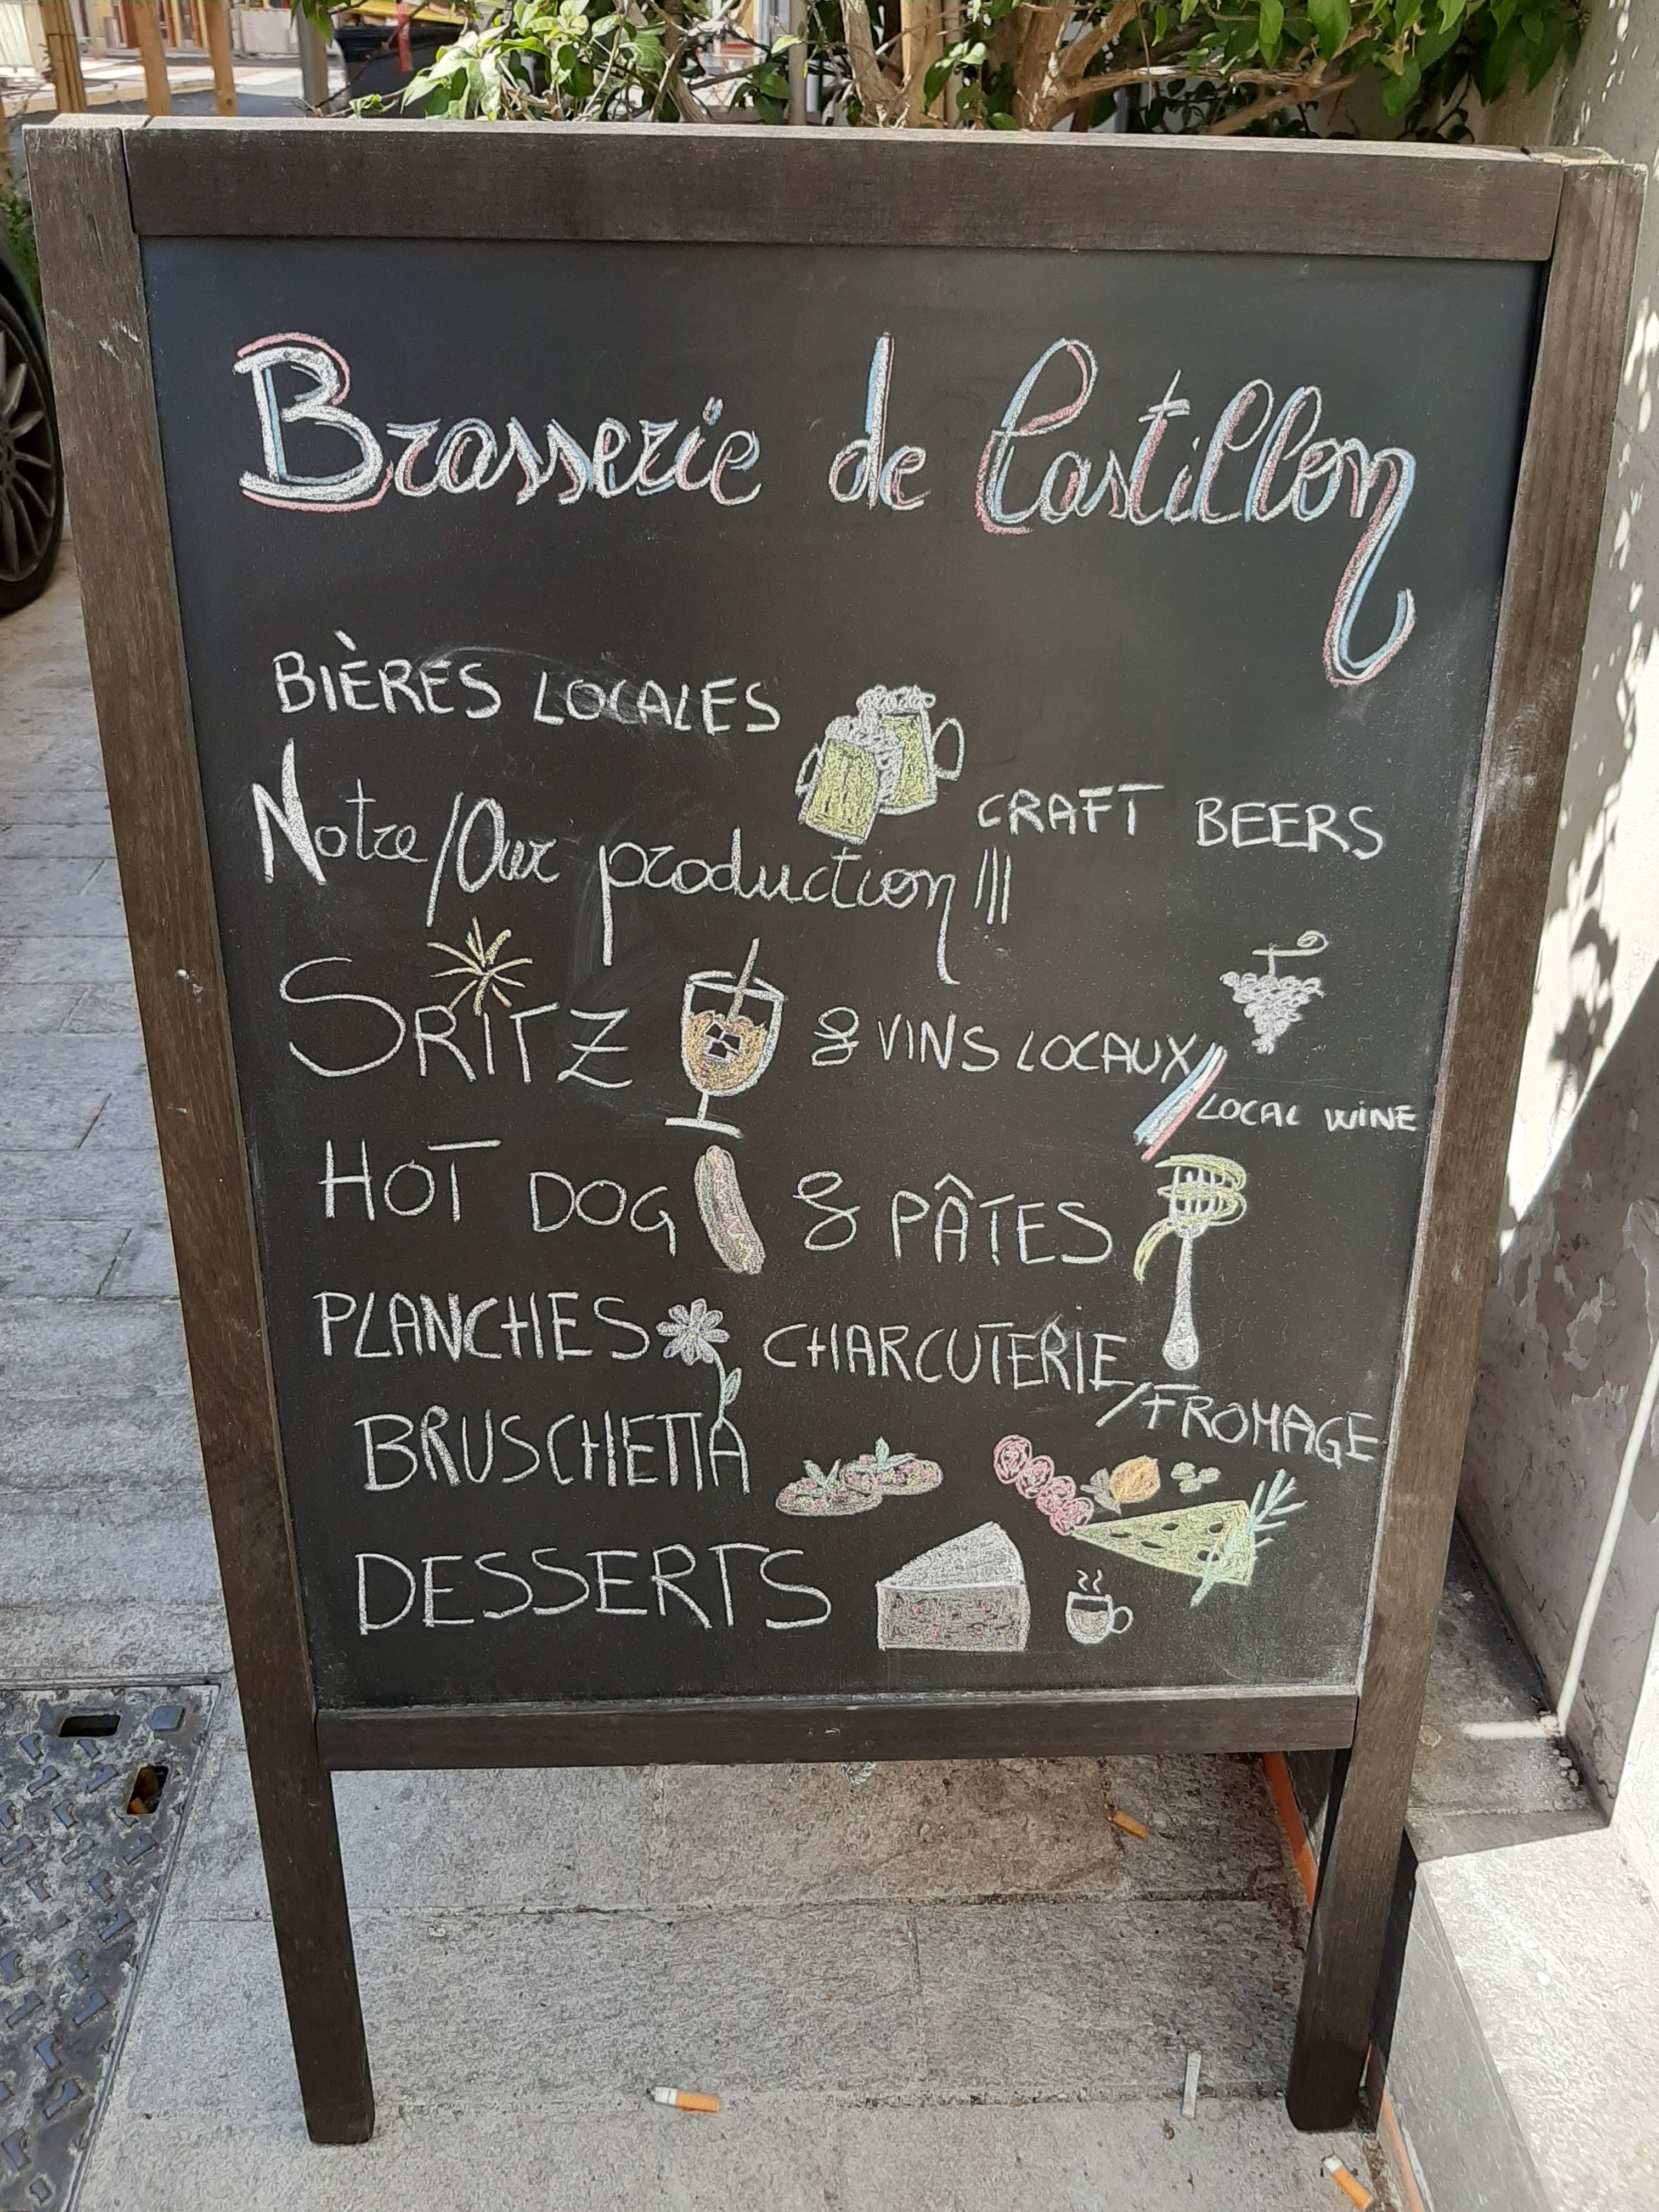 Brasserie de Castillon
BIÈRES LOCALES
CRAFT BEERS
Notre/Our production !!!
SRITZ & VINS LOCAUX
LOCAL WINE
HOT DOG & PÂTES
PLANCHES CHARCUTERIE
/FROMAGE
BRUSCHETTA
DESSERTS